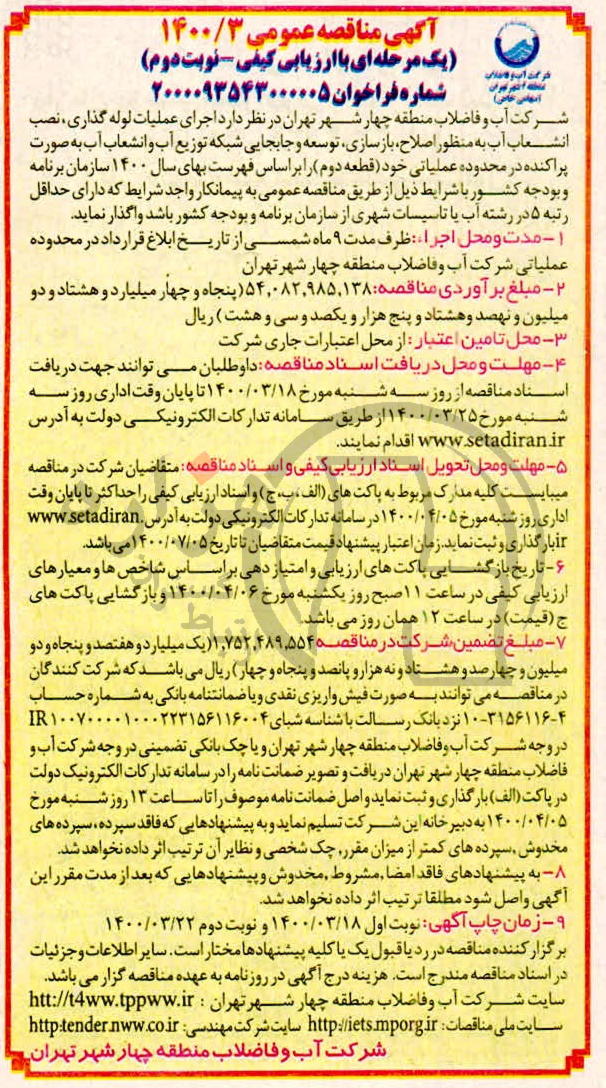 آگهی مناقصه عمومی ۱۴۰۰/۳
(یک مرحله ای با ارزیابی کیفی - نوبت دوم)
شماره فراخوان ۲۰۰۰۰۹۳۵۴۳۰۰۰۰۰۵
شرکت آب و فاضلاب
منطقه ۴ شهر تهران
(سهامی خاص)
شرکت آب و فاضلاب منطقه چهار شهر تهران در نظر دارد اجرای عملیات لوله گذاری، نصب
انشعاب آب به منظور اصلاح، بازسازی، توسعه و جابجایی شبکه توزیع آب و انشعاب آب به صورت
پراکنده در محدوده عملیاتی خود (قطعه دوم) را بر اساس فهرست بهای سال ۱۴۰۰ سازمان برنامه
و بودجه کشور با شرایط ذیل از طریق مناقصه عمومی به پیمانکار واجد شرایط که دارای حداقل
رتبه ۵ در رشته آب یا تاسیسات شهری از سازمان برنامه و بودجه کشور باشد واگذار نماید.
۱- مدت و محل اجراء: ظرف مدت ۹ ماه شمسی از تاریخ ابلاغ قرارداد در محدوده
عملیاتی شرکت آب وفاضلاب منطقه چهار شهر تهران
۲- مبلغ برآوردی مناقصه: ۵۴,۰۸۲,۹۸۵,۱۳۸ (پنجاه و چهار میلیارد و هشتاد و دو
میلیون و نهصد وهشتاد و پنج هزار و یکصد و سی و هشت) ریال
۳- محل تامین اعتبار: از محل اعتبارات جاری شرکت
۴- مهلت و محل دریافت اسناد مناقصه: داوطلبان می توانند جهت دریافت
اسناد مناقصه از روز سه شنبه مورخ ۱۴۰۰/۰۳/۱۸ تا پایان وقت اداری روز سه
شنبه مورخ ۱۴۰۰/۰۳/۲۵ از طریق سامانه تدارکات الکترونیکی دولت به آدرس
www.setadiran.ir اقدام نمایند.
۵- مهلت ومحل تحویل اسناد ارزیابی کیفی و اسناد مناقصه: متقاضیان شرکت در مناقصه
میبایست کلیه مدارک مربوط به پاکت های (الف، ب، ج) و اسناد ارزیابی کیفی را حداکثر تا پایان وقت
اداری روز شنبه مورخ ۱۴۰۰/۰۴/۰۵ در سامانه تدارکات الکترونیکی دولت به آدرس www.setadiran.
ir بارگذاری و ثبت نماید. زمان اعتبار پیشنهاد قیمت متقاضیان تا تاریخ ۱۴۰۰/۰۷/۰۵ می باشد.
۶- تاریخ بازگشایی پاکت های ارزیابی و امتیاز دهی بر اساس شاخص ها و معیارهای
ارزیابی کیفی در ساعت ۱۱ صبح روز یکشنبه مورخ ۱۴۰۰/۰۴/۰۶ و بازگشایی پاکت های
ج (قیمت) در ساعت ۱۲ همان روز می باشد.
۷- مبلغ تضمین شرکت در مناقصه ۱,۷۵۲,۴۸۹,۵۵۴ (یک میلیارد و هفتصد و پنجاه و دو
میلیون و چهارصد و هشتاد و نه هزار و پانصد و پنجاه و چهار) ریال می باشد که شرکت کنندگان
در مناقصه می توانند به صورت فیش واریزی نقدی و یا ضمانتنامه بانکی به شماره حساب
۱۰-۳۱۵۶۱۱۶-۴ نزد بانک رسالت با شناسه شبای IR ۱۰۰۷۰۰۰۰۱۰۰۰۲۲۳۱۵۶۱۱۶۰۰۴
در وجه شرکت آب وفاضلاب منطقه چهار شهر تهران و یا چک بانکی تضمینی در وجه شرکت آب و
فاضلاب منطقه چهار شهر تهران دریافت و تصویر ضمانت نامه را در سامانه تدارکات الکترونیک دولت
در پاکت (الف) بارگذاری و ثبت نماید و اصل ضمانت نامه موصوف را تا ساعت ۱۳ روز شنبه مورخ
۱۴۰۰/۰۴/۰۵ به دبیر خانه این شرکت تسلیم نماید و به پیشنهادهایی که فاقد سپرده، سپرده های
مخدوش، سپرده های کمتر از میزان مقرر، چک شخصی و نظایر آن ترتیب اثر داده نخواهد شد.
۸- به پیشنهادهای فاقد امضا، مشروط، مخدوش و پیشنهادهایی که بعد از مدت مقرر این
آگهی واصل شود مطلقا ترتیب اثر داده نخواهد شد.
۹- زمان چاپ آگهی: نوبت اول ۱۴۰۰/۰۳/۱۸ و نوبت دوم ۱۴۰۰/۰۳/۲۲
برگزار کننده مناقصه در رد یا قبول یک یا کلیه پیشنهادها مختار است. سایر اطلاعات و جزئیات
در اسناد مناقصه مندرج است. هزینه درج آگهی در روزنامه به عهده مناقصه گزار می باشد.
سایت شرکت آب وفاضلاب منطقه چهار شهر تهران : htt://t4ww.tppww.ir
سایت ملی مناقصات: http://iets.mporg.ir سایت شرکت مهندسی: http:tender.nww.co.ir
شرکت آب و فاضلاب منطقه چهار شهر تهران